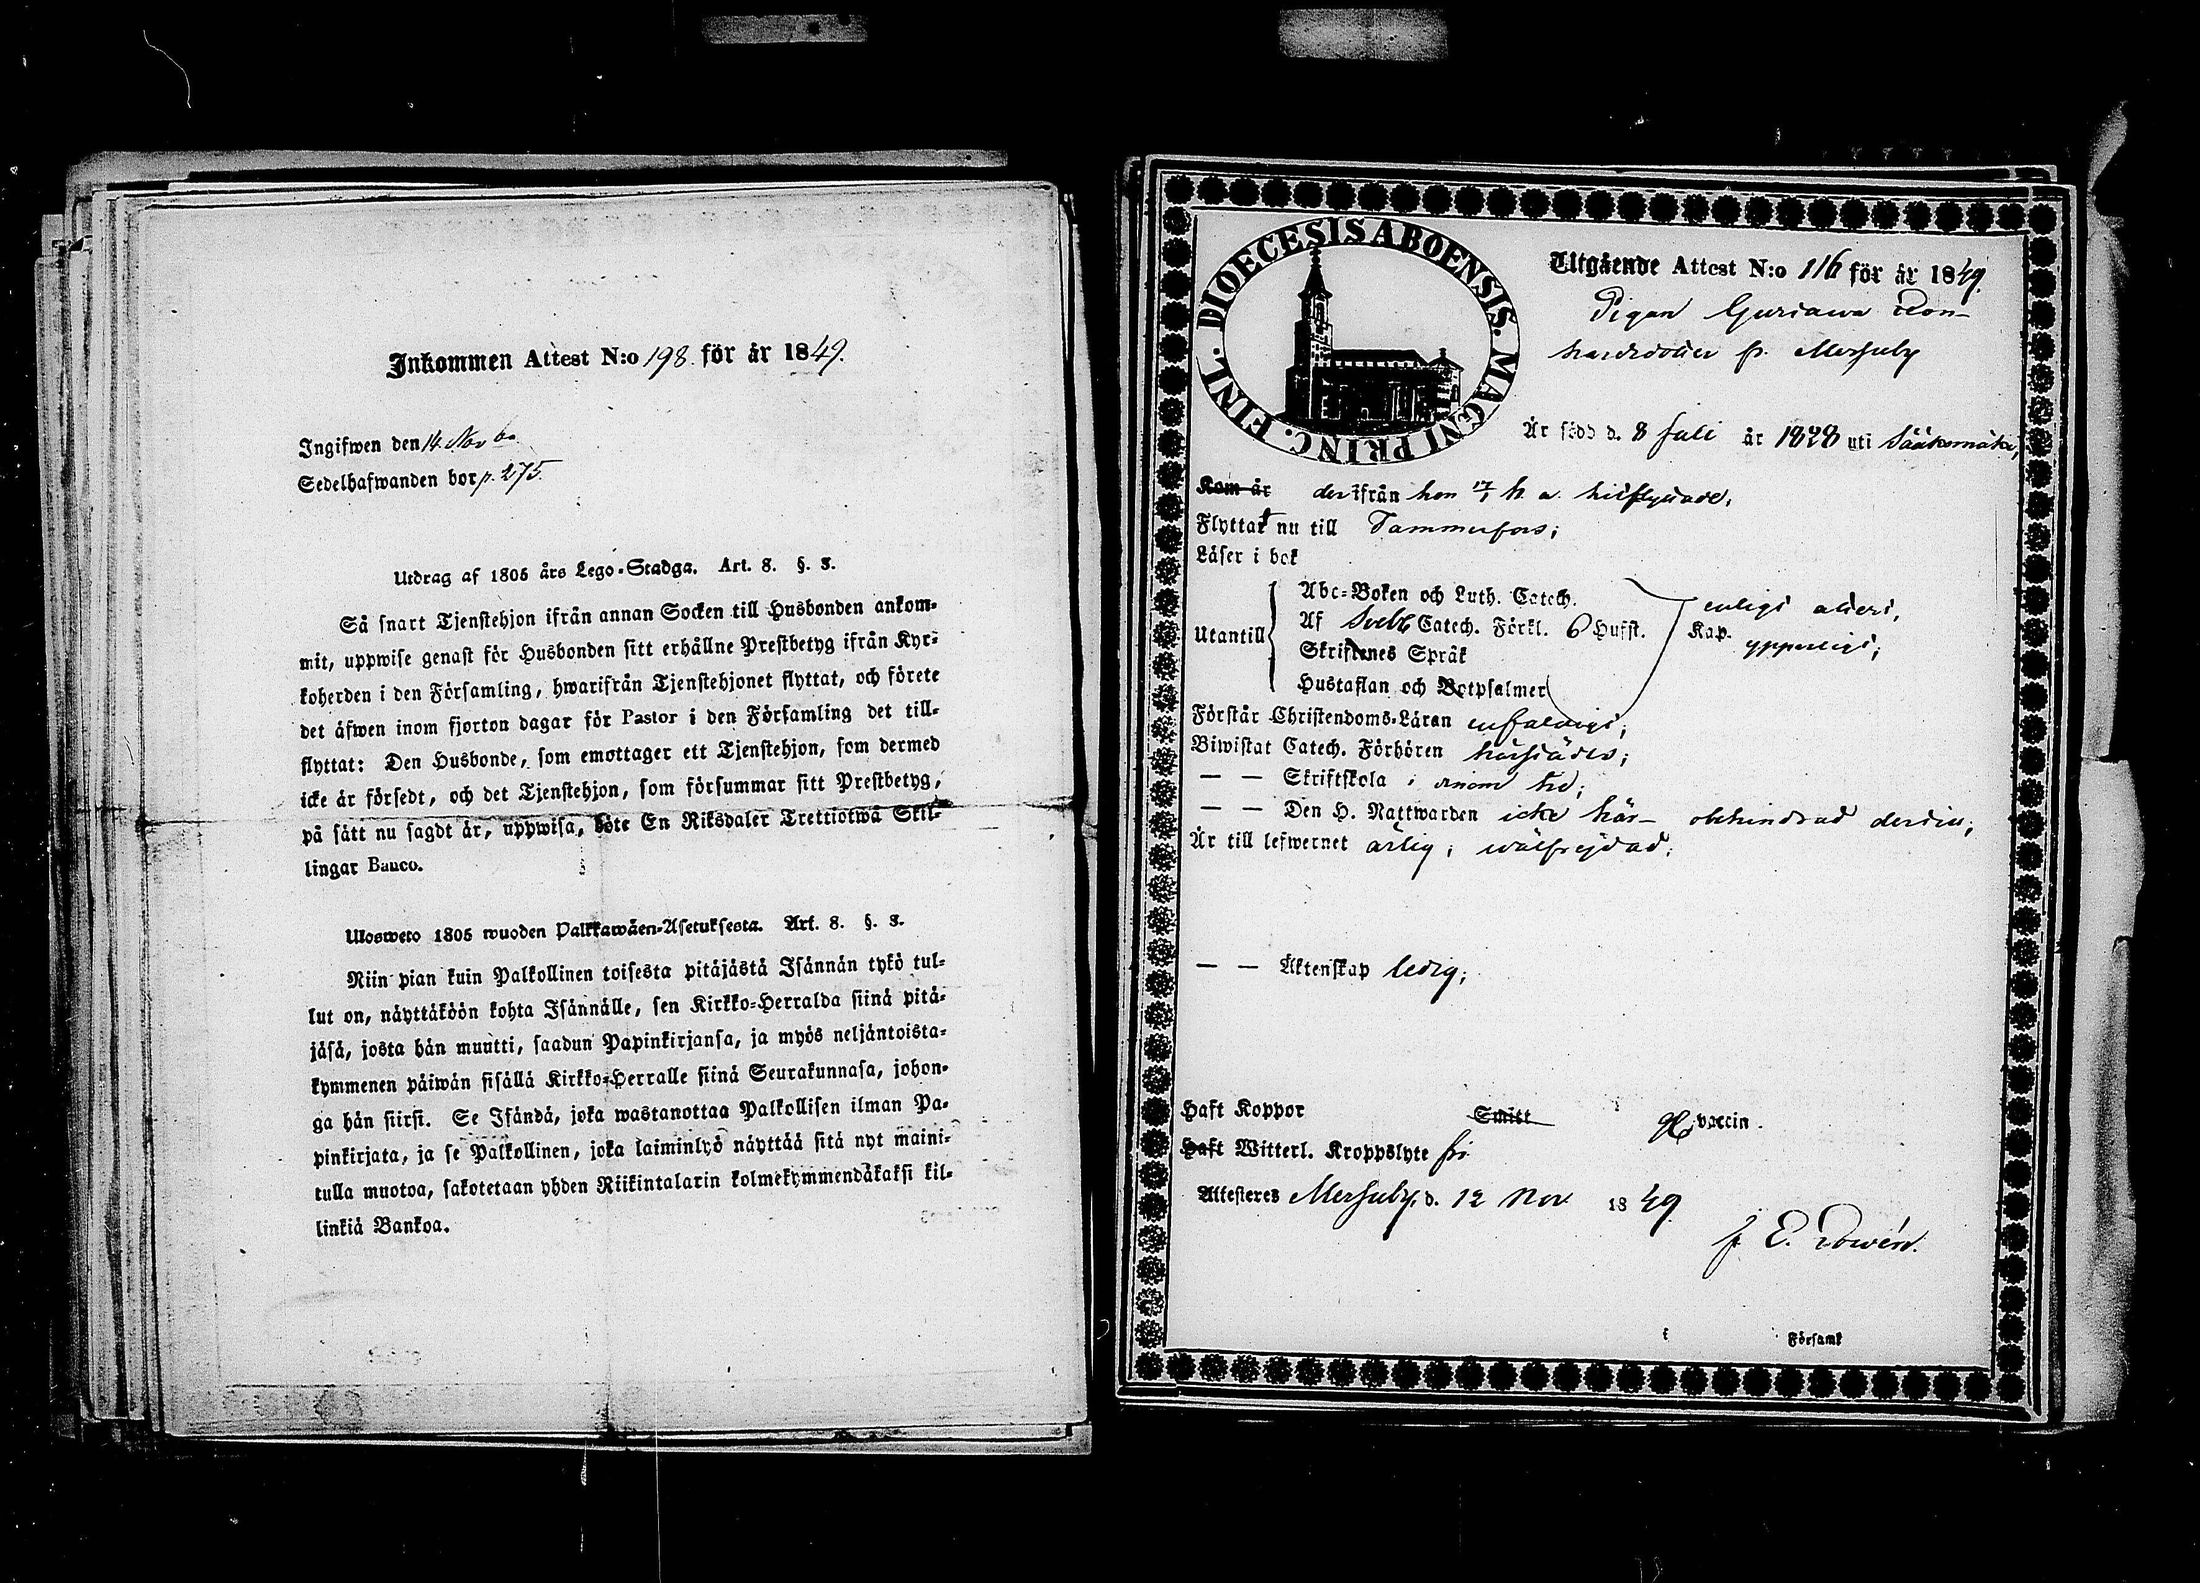 Inkommen Attest N:o 198. för år 1849.
Ingifwen den 14 Nov
Sedelhafwanden bor p. 275.
Utdrag af 1805 års Lego-Stadga. Art. 8. §. 3.
Så snart Tjenstehjon ifrån annan Socken till Husbonden ankom-
mit, uppwise genast för Husbonden sitt erhållne Prestbetyg ifrån Kyr-
koherden i den Församling, hwarifrån Tjenstehjonet flyttat, och förete
det äfwen inom fjorton dagar för Pastor i den Församling det till-
flyttat: Den Husbonde, som emottager ett Tjenstehjon, som dermed
icke är försedt, och det Tjenstehjon, som försummar sitt Prestbetyg,
på sätt nu sagdt är, uppwisa, böte En Riksdaler Trettiotwå Skil-
lingar Banco.
Ulosweto 1805 wuoden Palkkawäen-Asetuksesta. Art. 8. §. 3.
Niin pian kuin Palkollinen toisesta pitäjästä Isännän tykö tul-
lut on, näyttäköön kohta Isännälle, sen Kirkko-Herralda siinä pitä-
jäsä, josta hän muutti, saadun Papinkirjansa, ja myös neljäntoista-
kymmenen päiwän sisällä Kirkko-Herralle siinä Seurakunnasa, johon-
ga hän siirsi. Se Isändä, joka wastanottaa Palkollisen ilman Pa-
pinkirjata, ja se Palkollinen, joka laiminlyö näyttää sitä nyt maini-
tulla muotoa, sakotetaan yhden Riikintalarin kolmekymmendäkaksi kil-
linkiä Bankoa.
DIOECESIS ABOENSIS. MAGNI PRINC. FINL.
Utgående Attest N:o 116 för år 1849.
Pigan
fr. Messuby
Är född d. 8 Juli år 1828 uti Sääksmäki,
Kom år derifrån hon h. a. hitflyttade;
Flyttat nu till Tammerfors;
Läser i bok
Utantill
Abc-Boken och Luth. Catech.
Af Sveb Catech. Förkl. 6 Hufst. Kap.
Skriftenes Språk
Hustaflan och Botpsalmer
enligt attest,
ypperligt;
Förstår Christendoms-Läran enfaldigt;
Biwistat Catech. Förhören härstädes;
— — Skriftskola i sinom tid;
— — Den H. Nattwarden icke här – ohindrad dertill;
Är till lefwernet ärlig, wälfrejdad;
— — Äktenskap ledig;
Haft Koppor Smitt vaccin.
Haft Witterl. Kroppslyte fri
Attesteras Messuby, d. 12 Nov 1849
E.
Församl